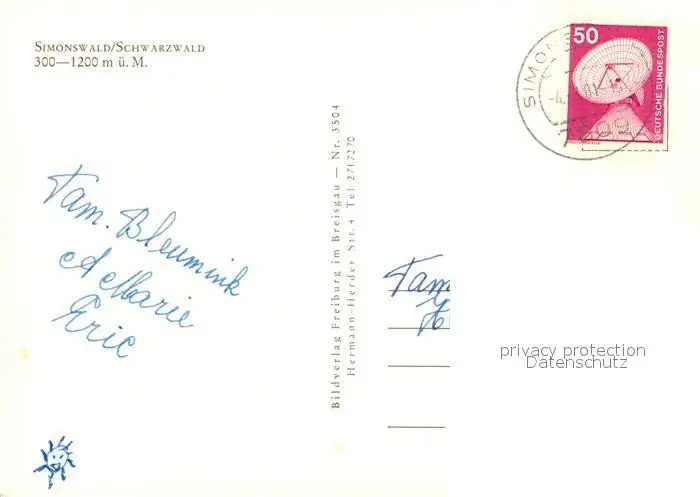 SIMONSWALD/SCHWARZWALD
300—1200 m ü. M.
Fam. Bleumink
Marie
Eric
Bildverlag Freiburg im Breisgau — Nr. 3504
Hermann-Herder Str. 4 Tel. 2717270
SIMON
50
DEUTSCHE BUNDESPOST
Fam
privacy protection
Datenschutz